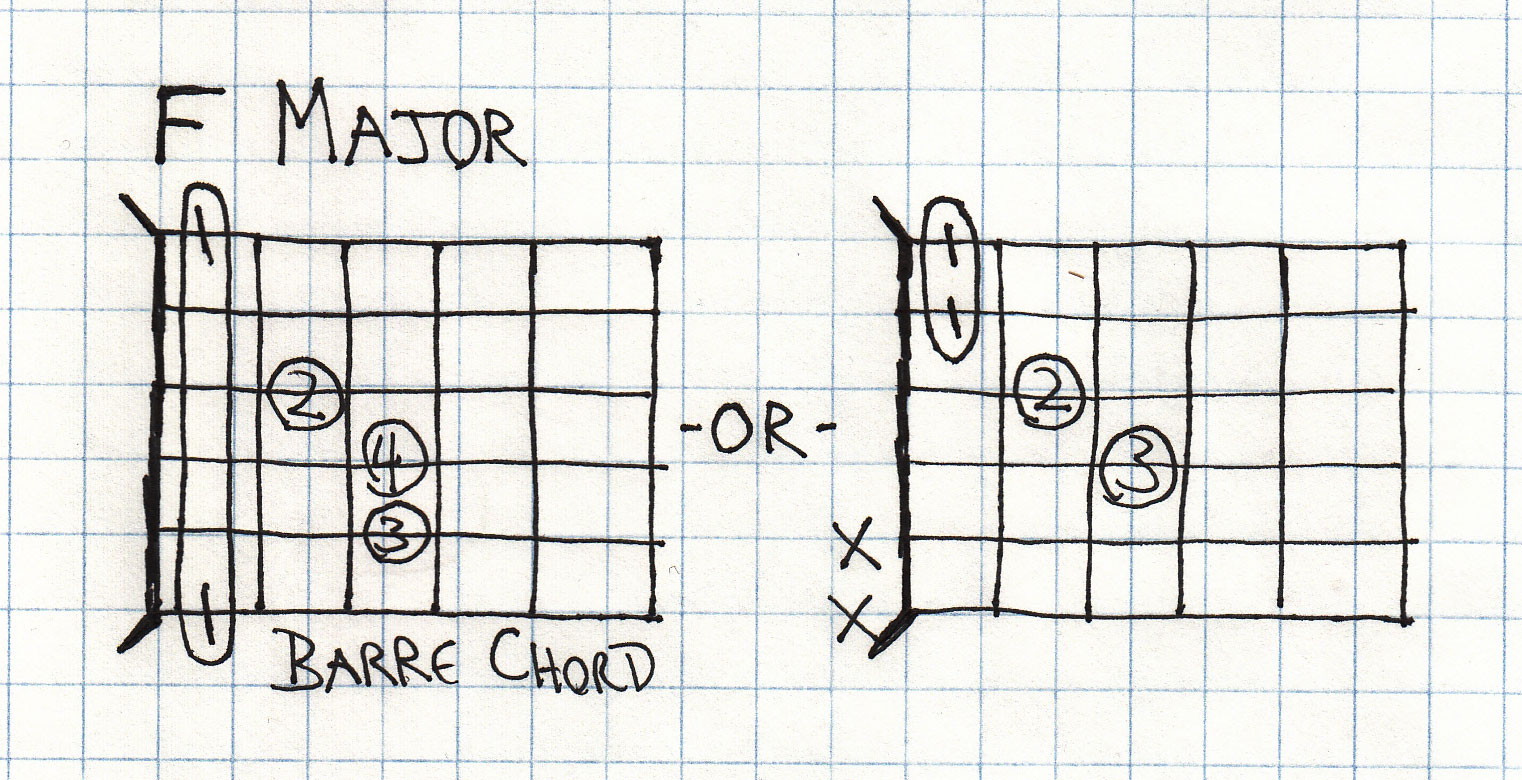 F MAJOR
1
2
4
3
1
BARRE CHORD
-OR-
1
1
2
3
X
X